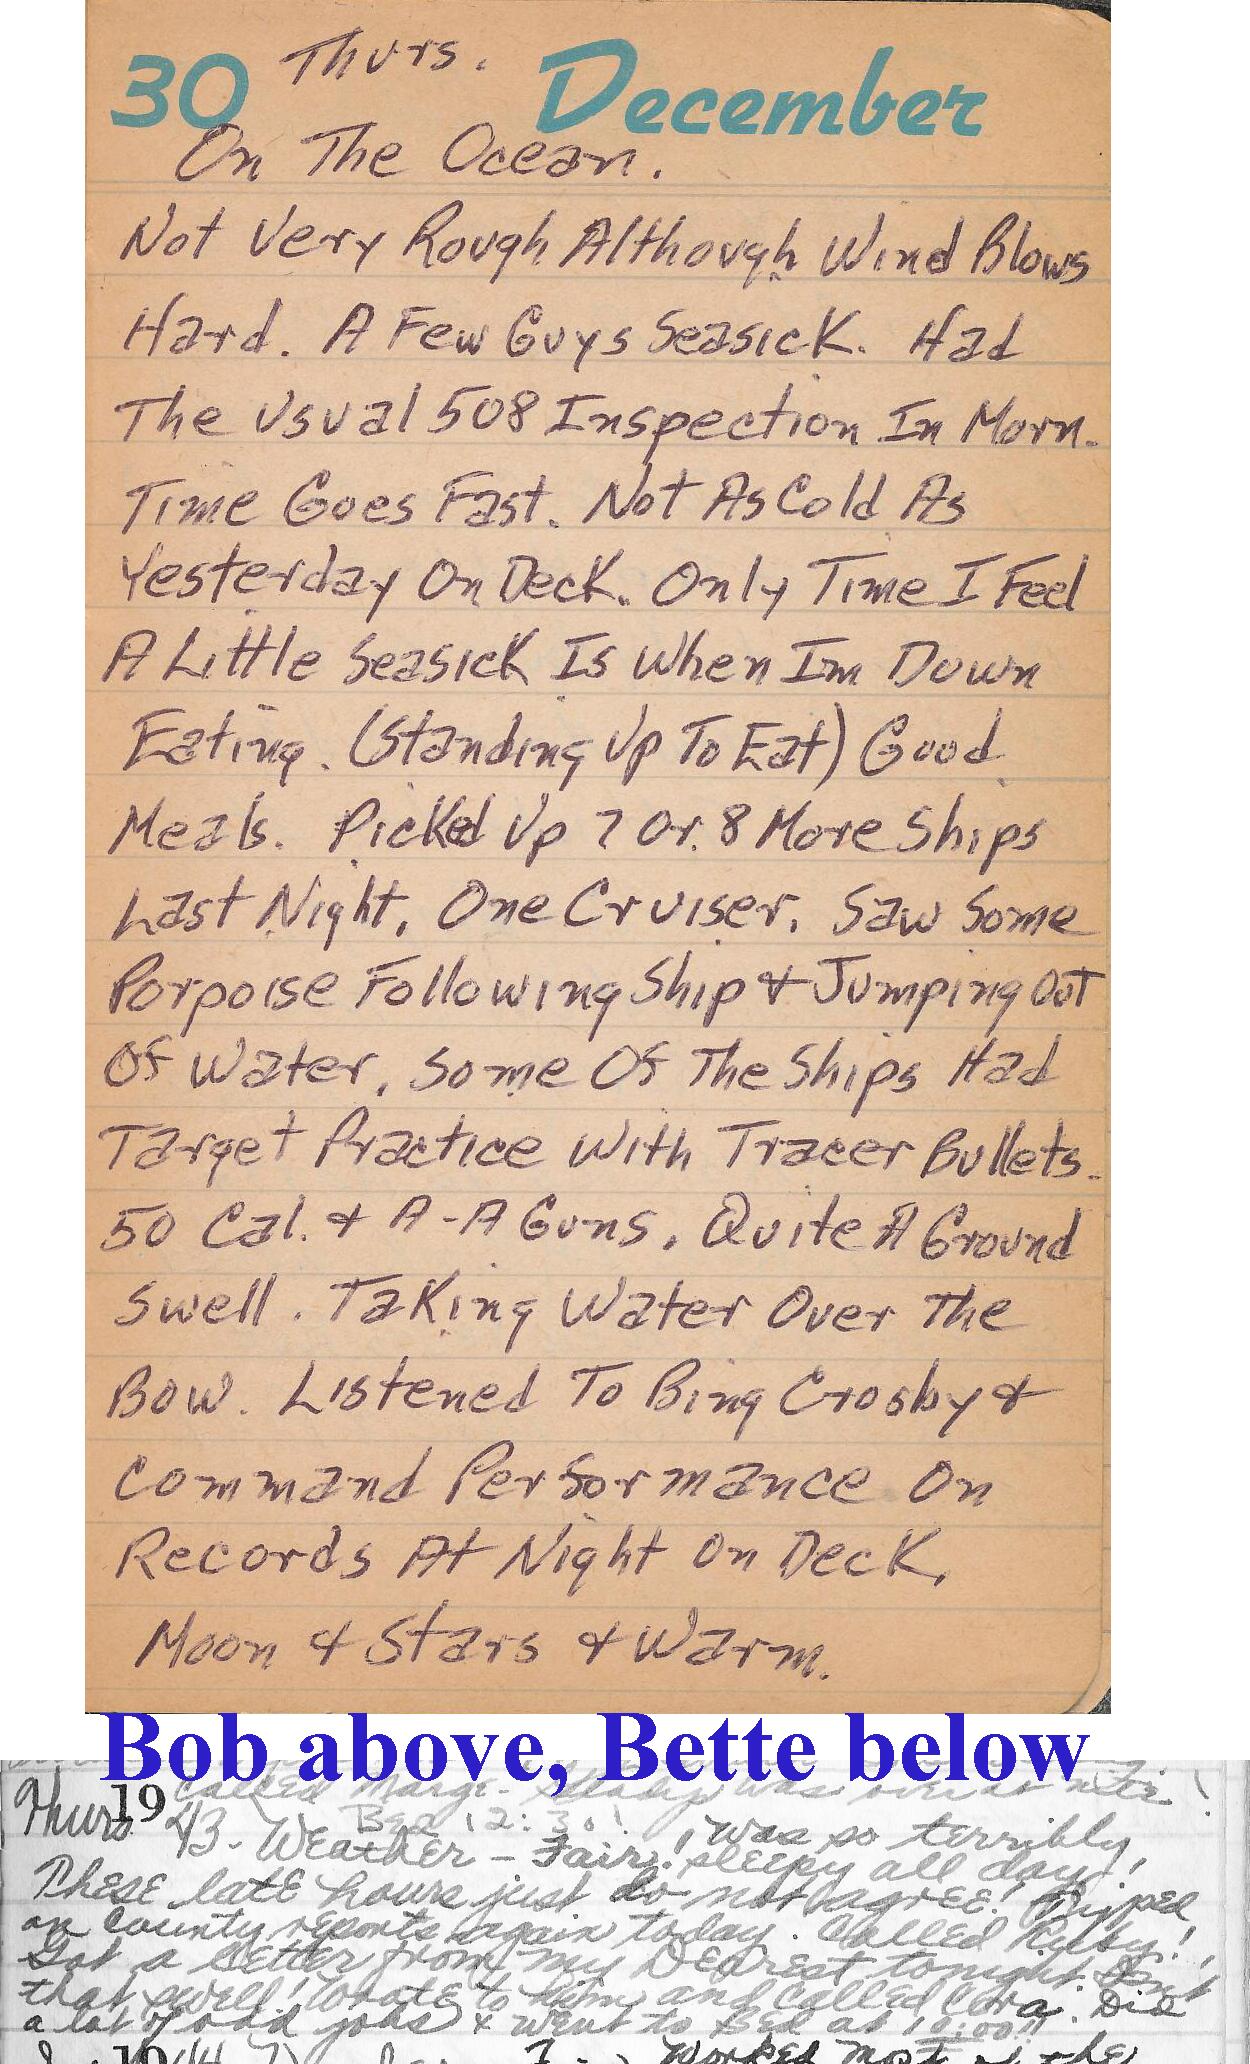 30 Thurs. December
On The Ocean.
Not Very Rough Although Wind Blows
Hard. A Few Guys Seasick. Had
The Usual 508 Inspection In Morn.
Time Goes Fast. Not As Cold As
Yesterday On Deck. Only Time I Feel
A Little Seasick Is When Im Down
Eating. (Standing Up To Eat) Good
Meals. Picked Up 7 Or 8 More Ships
Last Night, One Cruiser. Saw Some
Porpoise Following Ship & Jumping Out
Of Water. Some Of The Ships Had
Target Practice With Tracer Bullets.
50 Cal. & A-A Guns. Quite A Ground
Swell. Taking Water Over The
Bow. Listened To Bing Crosby &
Command Performance On
Records At Night On Deck.
Moon & Stars & Warm.
Bob above, Bette below
Called Marge. was over at nite!
Bed 12:30!
Thurs 1943 - Weather - Fair! I was so terribly
sleepy all day!
These late hours just do not agree! Typed
on county reports again today. Called!
Got a letter from my Dearest tonight.
that swell! Wrote to him and called Cora. Did
a lot of odd jobs & went to Bed at 10:00!!
19 Worked most of the